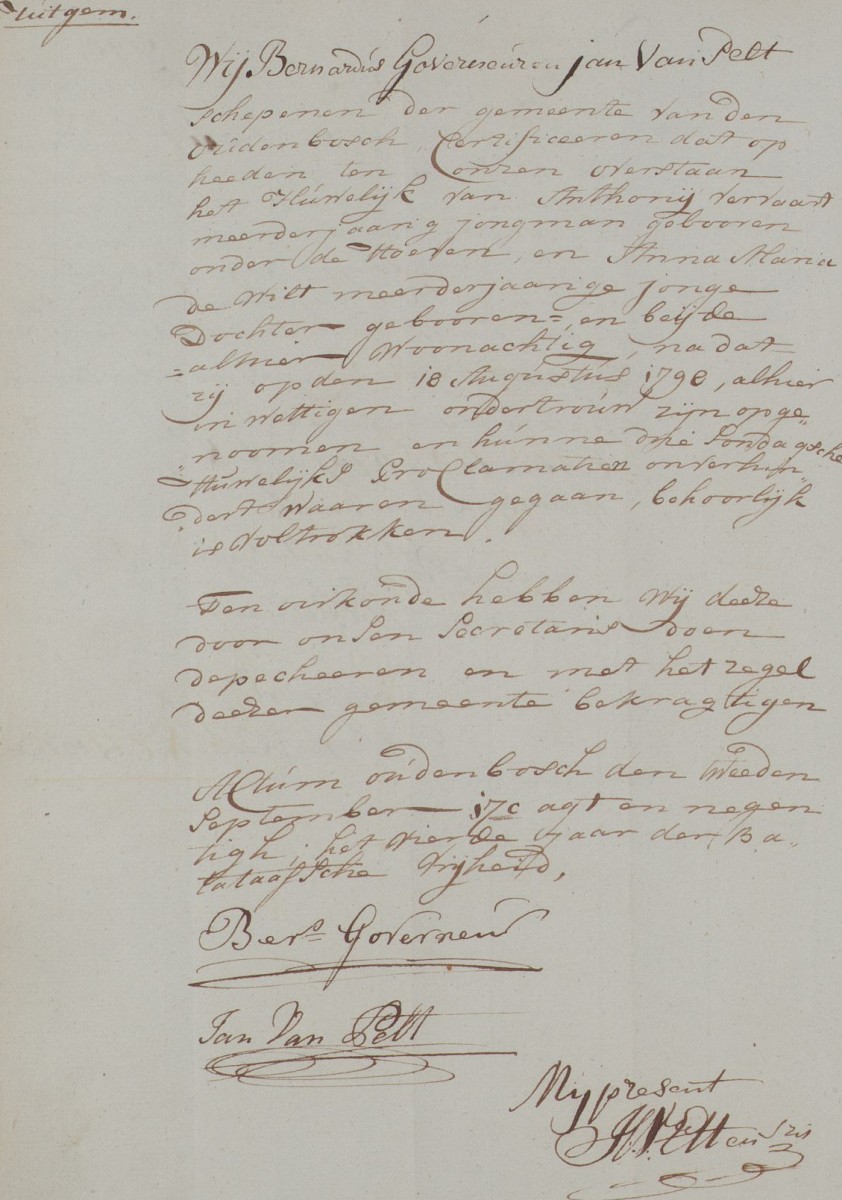 uitgem.
Wij Bernardus Governeur en jan Van Pelt
schepenen der gemeente van den
oudenbosch, Certificeeren dat op
heeden ten onzen overstaan
het Huwelijk van Anthonij vervaart
meerderjaarig jongman gebooren
onder de Hoeven, en Anna Maria
de Wilt meerderjaarige jonge
Dochter gebooren=, en beijde
=alhier Woonachtig, na dat
zij op den 18 Augustus 1798, alhier
in wettigen ondertrouw zijn opge„
noomen en hunne drie Sondagsche
Huwelijks Proclamatien onverhin„
dert waaren gegaan, behoorlijk
is voltrokken.
Ten oirkonde hebben Wij deeze
door onsen Secretaris doen
depecheeren en met het zegel
deezer gemeente bekragtigen
Actum oudenbosch den tweeden
September 17c agt en negen
tigh, het vierde jaar der Ba„
tataafsche Vrijheid,
Bers Governeur
Jan Van Pelt
Mij present